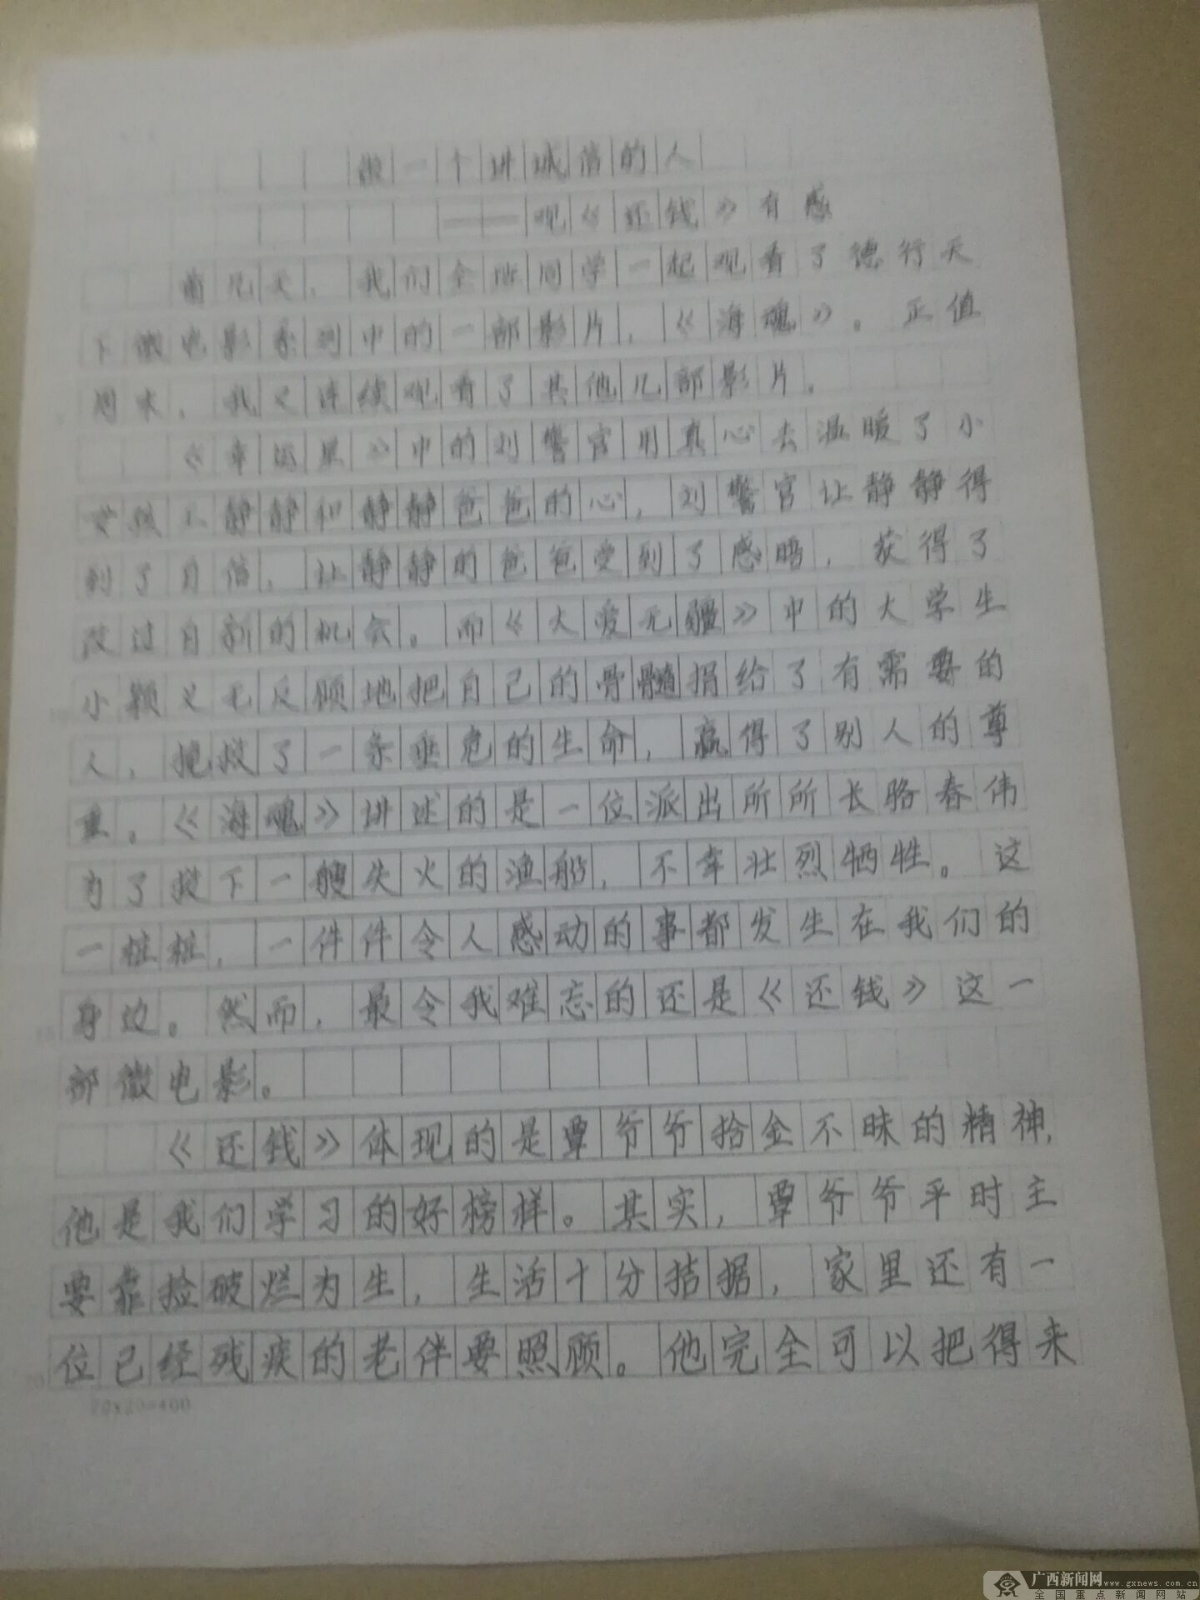 做一个讲诚信的人
——观《还钱》有感
前几天，我们全班同学一起观看了德行天
下微电影系列中的一部影片，《海魂》。正值
周末，我又连续观看了其他几部影片。
《幸运星》中的刘警官用真心去温暖了小
女孩静静和静静爸爸的心，刘警官让静静得
到了自信，让静静的爸爸受到了感晤，获得了
改过自新的机会。而《大爱无疆》中的大学生
小颖义无反顾地把自己的骨髓捐给了有需要的
人，挽救了一条垂危的生命，赢得了别人的尊
重。《海魂》讲述的是一位派出所所长骆春伟
为了救下一艘失火的渔船，不幸壮烈牺牲。这
一桩桩，一件件令人感动的事都发生在我们的
身边。然而，最令我难忘的还是《还钱》这一
部微电影。
《还钱》体现的是覃爷爷拾金不昧的精神，
他是我们学习的好榜样。其实，覃爷爷平时主
要靠捡破烂为生，生活十分拮据，家里还有一
位已经残疾的老伴要照顾。他完全可以把得来
20×20=400
广西新闻网 www.gxnews.com.cn
全国重点新闻网站